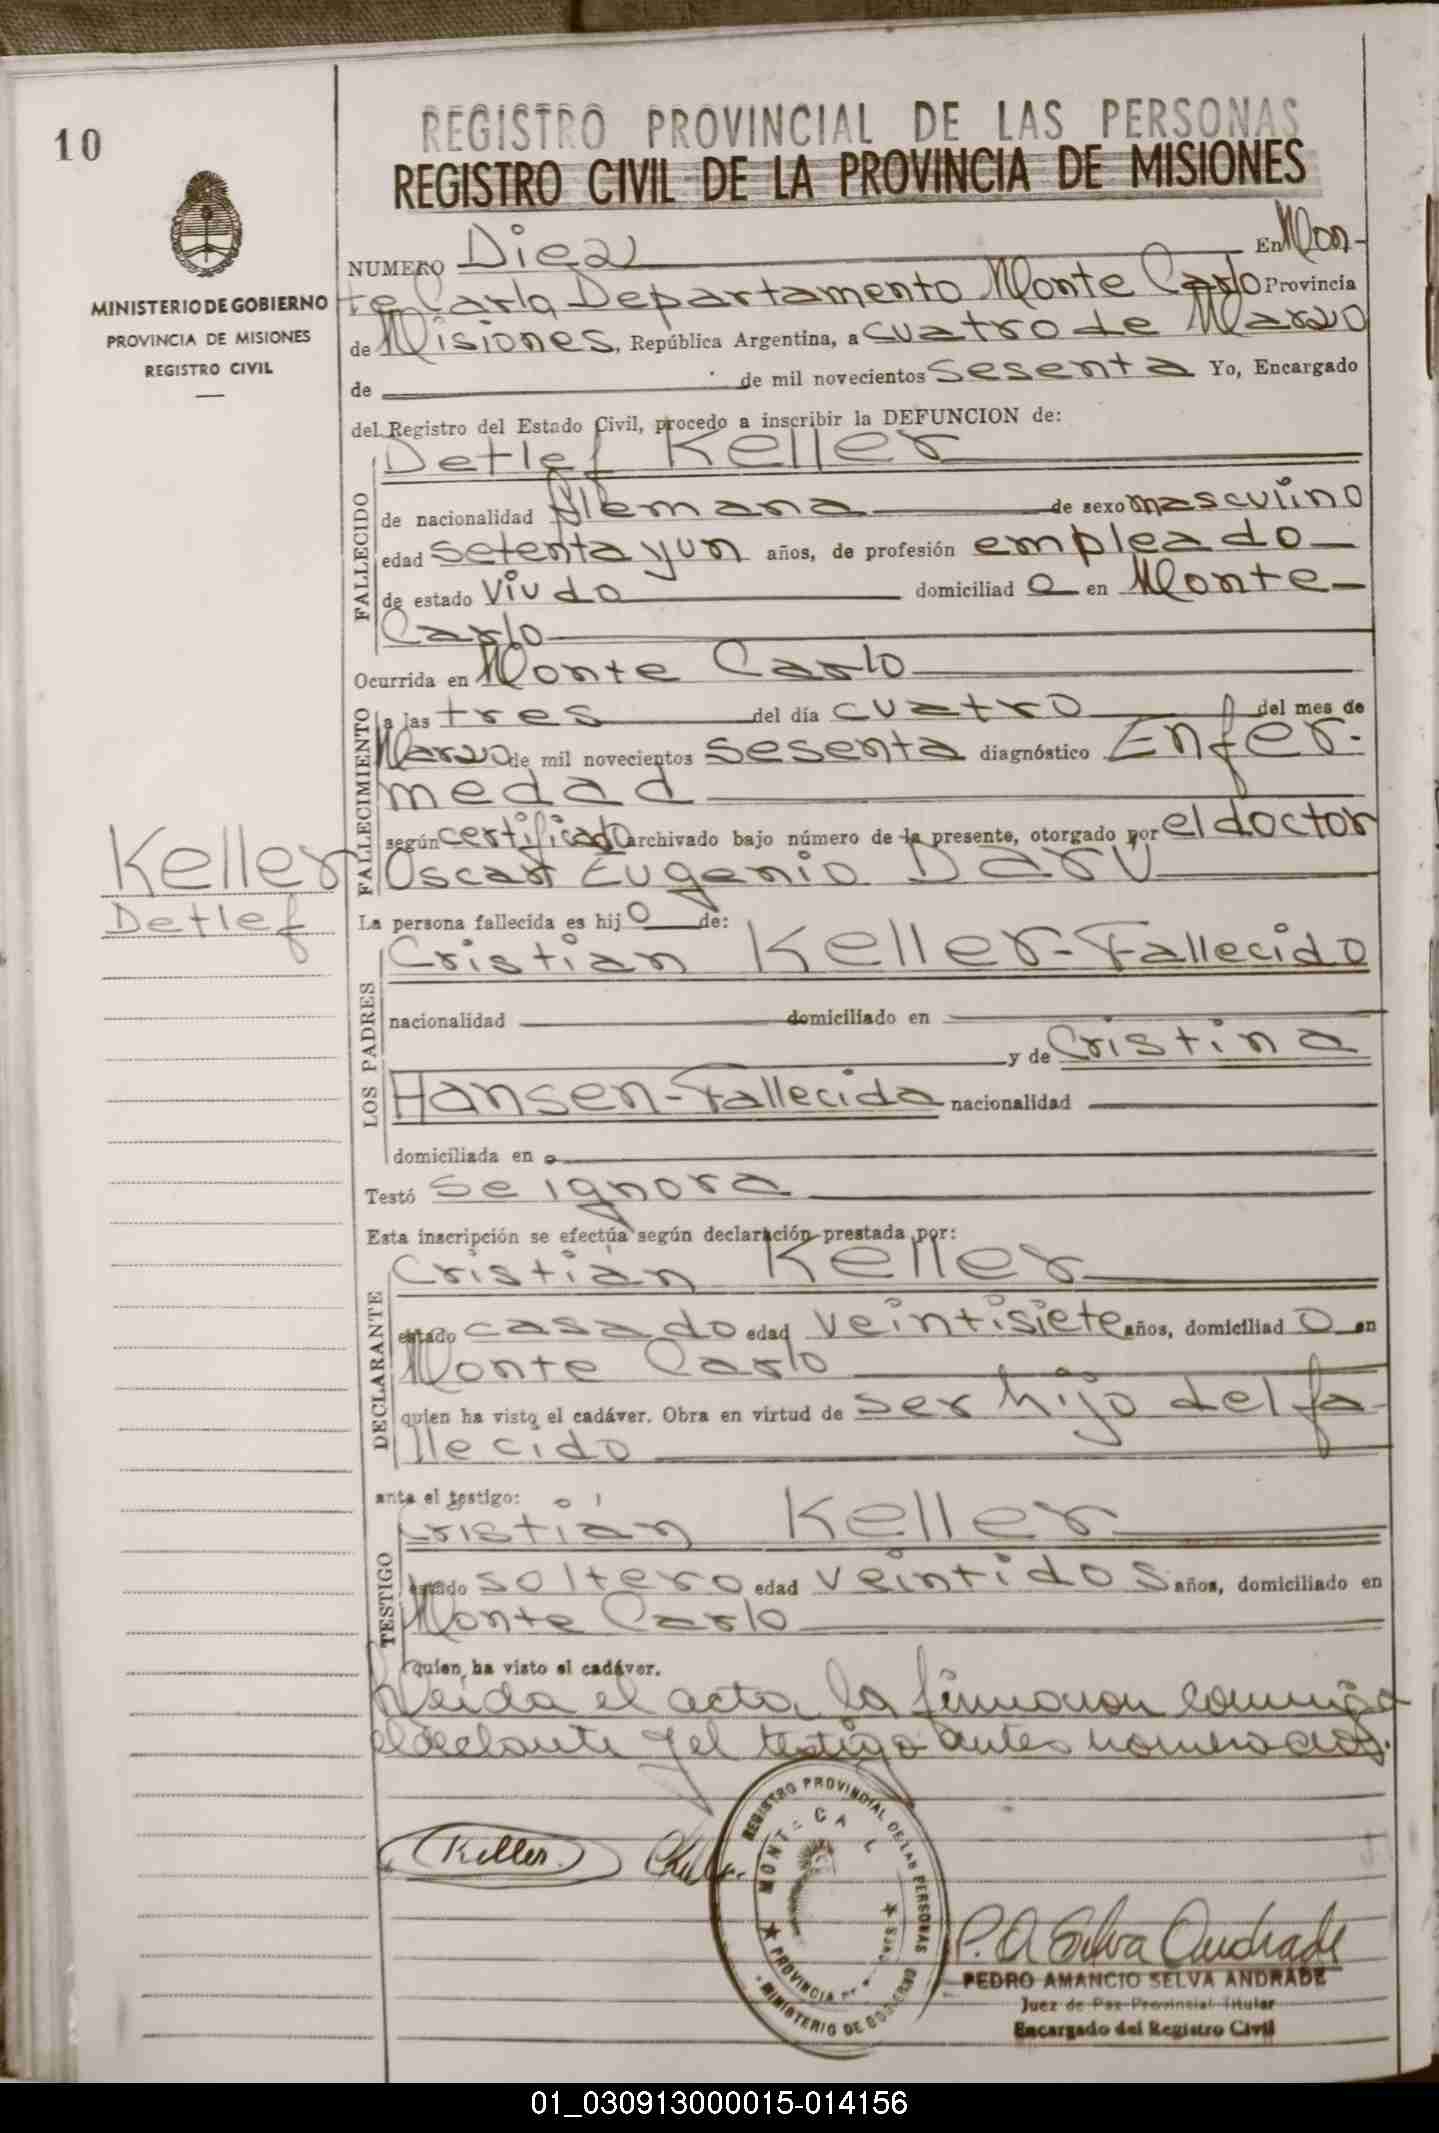 10
MINISTERIO DE GOBIERNO
PROVINCIA DE MISIONES
REGISTRO CIVIL
Keller
Detlef
REGISTRO PROVINCIAL DE LAS PERSONAS
REGISTRO CIVIL DE LA PROVINCIA DE MISIONES
NUMERO Diez En Mon-
te Carlo Departamento Monte Carlo Provincia
de Misiones, República Argentina, a cuatro de Marzo
de de mil novecientos sesenta Yo, Encargado
del Registro del Estado Civil, procedo a inscribir la DEFUNCION de:
Detlef Keller
FALLECIDO
de nacionalidad Alemana de sexo masculino
edad setenta y un años, de profesión empleado
de estado viudo domiciliad o en Monte-
Carlo
Ocurrida en Monte Carlo
FALLECIMIENTO
a las tres del día cuatro del mes de
Marzo de mil novecientos sesenta diagnóstico Enfer-
medad
según certificado archivado bajo número de la presente, otorgado por el doctor
Oscar Eugenio Daru
La persona fallecida es hij o de:
LOS PADRES
Cristian Keller-Fallecido
nacionalidad domiciliado en
y de Cristina
Hansen-Fallecida nacionalidad
domiciliada en
Testó se ignora
Esta inscripción se efectúa según declaración prestada por:
DECLARANTE
Cristián Keller
estado casado edad veintisiete años, domiciliad o en
Monte Carlo
quien ha visto el cadáver. Obra en virtud de ser hijo del fa-
llecido
ante el testigo:
TESTIGO
Cristián Keller
estado soltero edad veintidos años, domiciliado en
Monte Carlo
quien ha visto el cadáver.
Leida el acta la firmaron conmigo
el declante y el testigo antes nomerados.
Keller
REGISTRO PROVINCIAL DE LAS PERSONAS
MONTE CA L
PROVINCIA DE
MINISTERIO DE GOBIERNO
P. A. Selva Andrade
PEDRO AMANCIO SELVA ANDRADE
Juez de Paz Provincial Titular
Encargado del Registro Civil
01_030913000015-014156